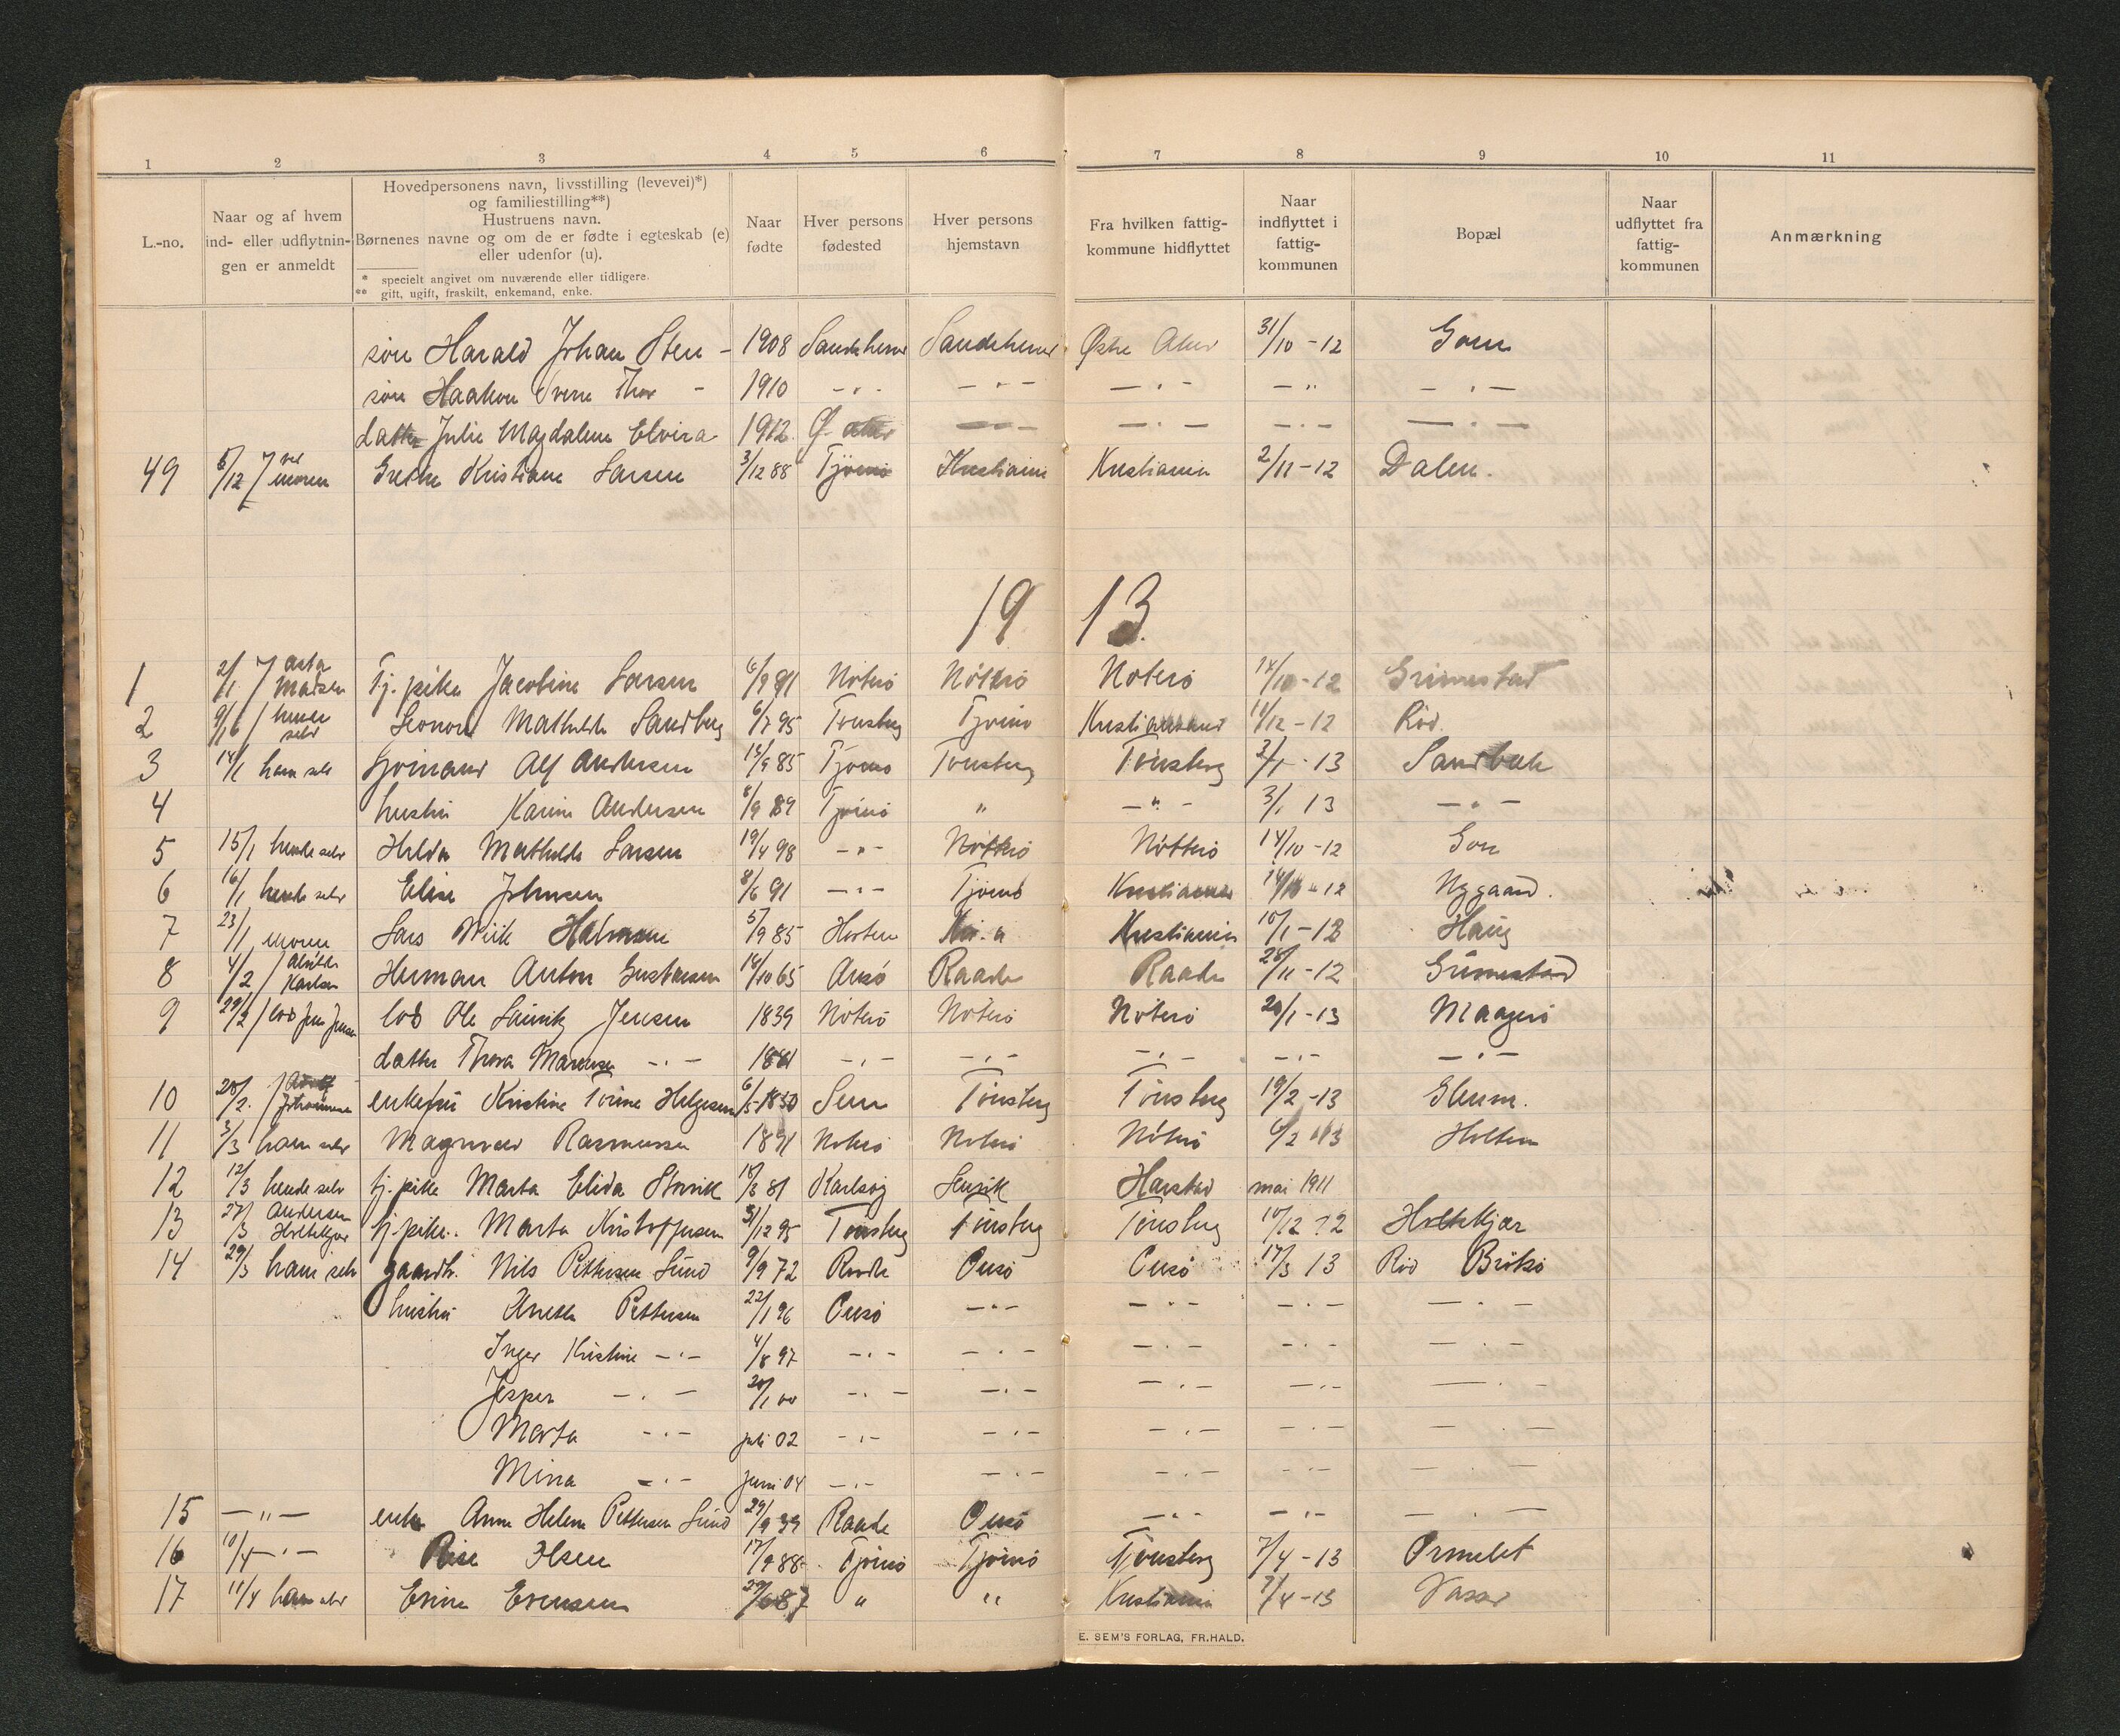 1 2 3 4 5 6 7 8 9 10 11
L.-no.
Naar og af hvem
ind- eller udflytnin-
gen er anmeldt
Hovedpersonens navn, livsstilling (levevei)*)
og familiestilling**)
Hustruens navn.
Børnenes navne og om de er fødte i egteskab (e)
eller udenfor (u).
* specielt angivet om nuværende eller tidligere.
** gift, ugift, fraskilt, enkemand, enke.
Naar
fødte
Hver persons
fødested
Hver persons
hjemstavn
Fra hvilken fattig-
kommune hidflyttet
Naar
indflyttet i
fattig-
kommunen
Bopæl
Naar
udflyttet fra
fattig-
kommunen
Anmærkning
søn Harald Johan Sten - 1908 Sandeherred Sandeherred Østre Aker 31/10 -12 Gon
søn Haakon Sverre Thor - 1910 -"- -"- -"- -" -"-
datter Julie Magdalene Elvira 1912 Ø. aker -"- -"- -"- -"-
49 6/12 / ved moren Grethe Kristiane Larsen 3/12 88 Tjømø Kristiania Kristiania 2/11 -12 Dalen.
1913.
1 2/1 / Asta Madsen Tj. pike Jacobine Larsen 6/9 91 Nøterø Nøtterø Nøterø 14/10 -12 Grimestad
2 hende selv Leonora Mathilde Sandberg 6/7 95 Tønsberg Tjømø Kristiansand 11/12 -12 Rød.
3 14/1 ham selv Alf Andersen 85 Tjømø Tønsberg Tønsberg 3/1 -13 Sandbæk
4 hustru Karin Andersen 8/9 89 Tjømø " -"- 3/1 13 -"-
5 15/1 hende selv Hilda Mathilde Larsen 19/4 98 -"- Nøtterø Nøtterø 14/10 -12 Gon
6 16/1 hende selv Elise Johnsen 8/6 91 -"- Tjømø Kristiania 14/10 -12 Nygaard.
7 23/1 moren Lars Wiik Halvorsen 5/9 85 Horten Kr. a Kristiania 10/1 -13 Haug
8 4/2 / Karlsen Herman Anton Gustavsen 14/10 65 Onsø Raade Raade 28/11 -12 Grimestad
9 29/2 / lods Jens Jensen lods Ole Lauritz Jensen 1839 Nøterø Nøterø Nøterø 20/1 -13 Maagerø
datter Thora -"- -"- -"- -"- -"- -"-
10 28/2. / Johannesen enkefru Kristine Torine Helgesen 6/5 1830 Sem Tønsberg Tønsberg 19/2 -13 Glenne.
11 3/3 ham selv Magnvald Rasmussen 1891 Nøterø Nøterø Nøterø 6/2 13 Holtene
12 12/3 hende selv tj. pike Marta Elida 18/3 81 Karlsøy Harstad mai 1911
13 27/3 Andersen Holtekjær tj. pike. Marta Kristoffersen 31/12 95 Tønsberg Tønsberg Tønsberg 10/12 12 Holtekjær
14 29/3 ham selv gaardbr. Nils Pettersen Lund 9/9 72 Raade Onsø Onsø 17/3 13 Rød Brøtsø
hustru Anette Pettersen 22/1 96 Onsø -"- -"- -"- -"-
Inger Kristine -"- 4/8 97 -"- -"- -"- -"- -"-
Jesper -"- 20/1 00 -"- -"- -"- -"- -"-
Marta -"- juli 02 -"- -"- -"- -"- -"-
Mina -"- juni 04 -"- -"- -"- -"- -"-
15 -"- enke Anne Helene Pettersen Lund 29/9 39 Raade Onsø -"- -"- -"-
16 10/4 -"- Olsen 17/9 88 Tjømø Tjømø Tønsberg 7/4 -13 Ormelet
17 11/4 ham selv Evine Evensen 29/6 87 " " Kristiania 7/4 -13 Vasser
E. SEM'S FORLAG, FR.HALD.